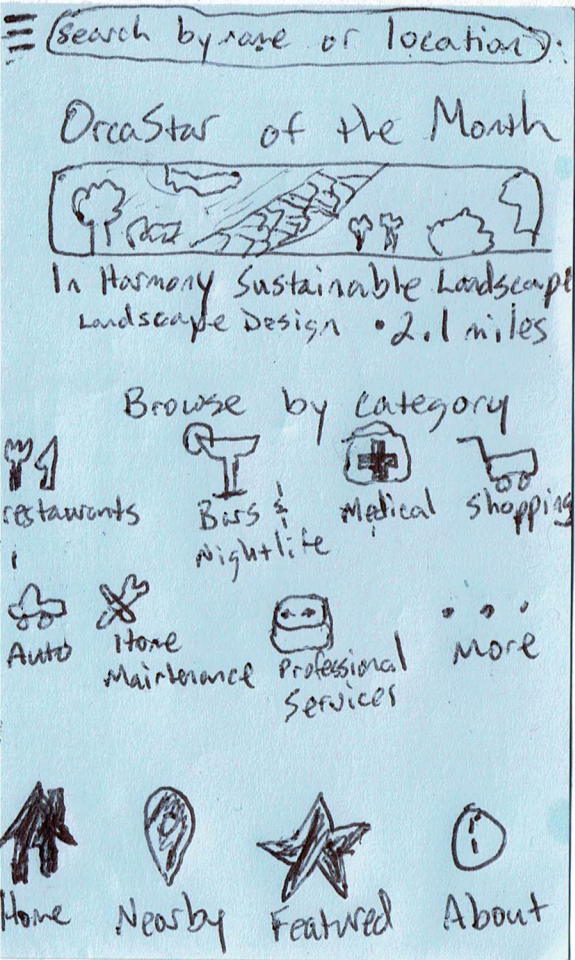 Search by name or location
OrcaStar of the Month
In Harmony Sustainable Landscape
Landscape Design • 2.1 miles
Browse by category
restaurants Bars & Nightlife Medical Shopping
Auto Home Maintenance Professional Services More
Home Nearby Featured About